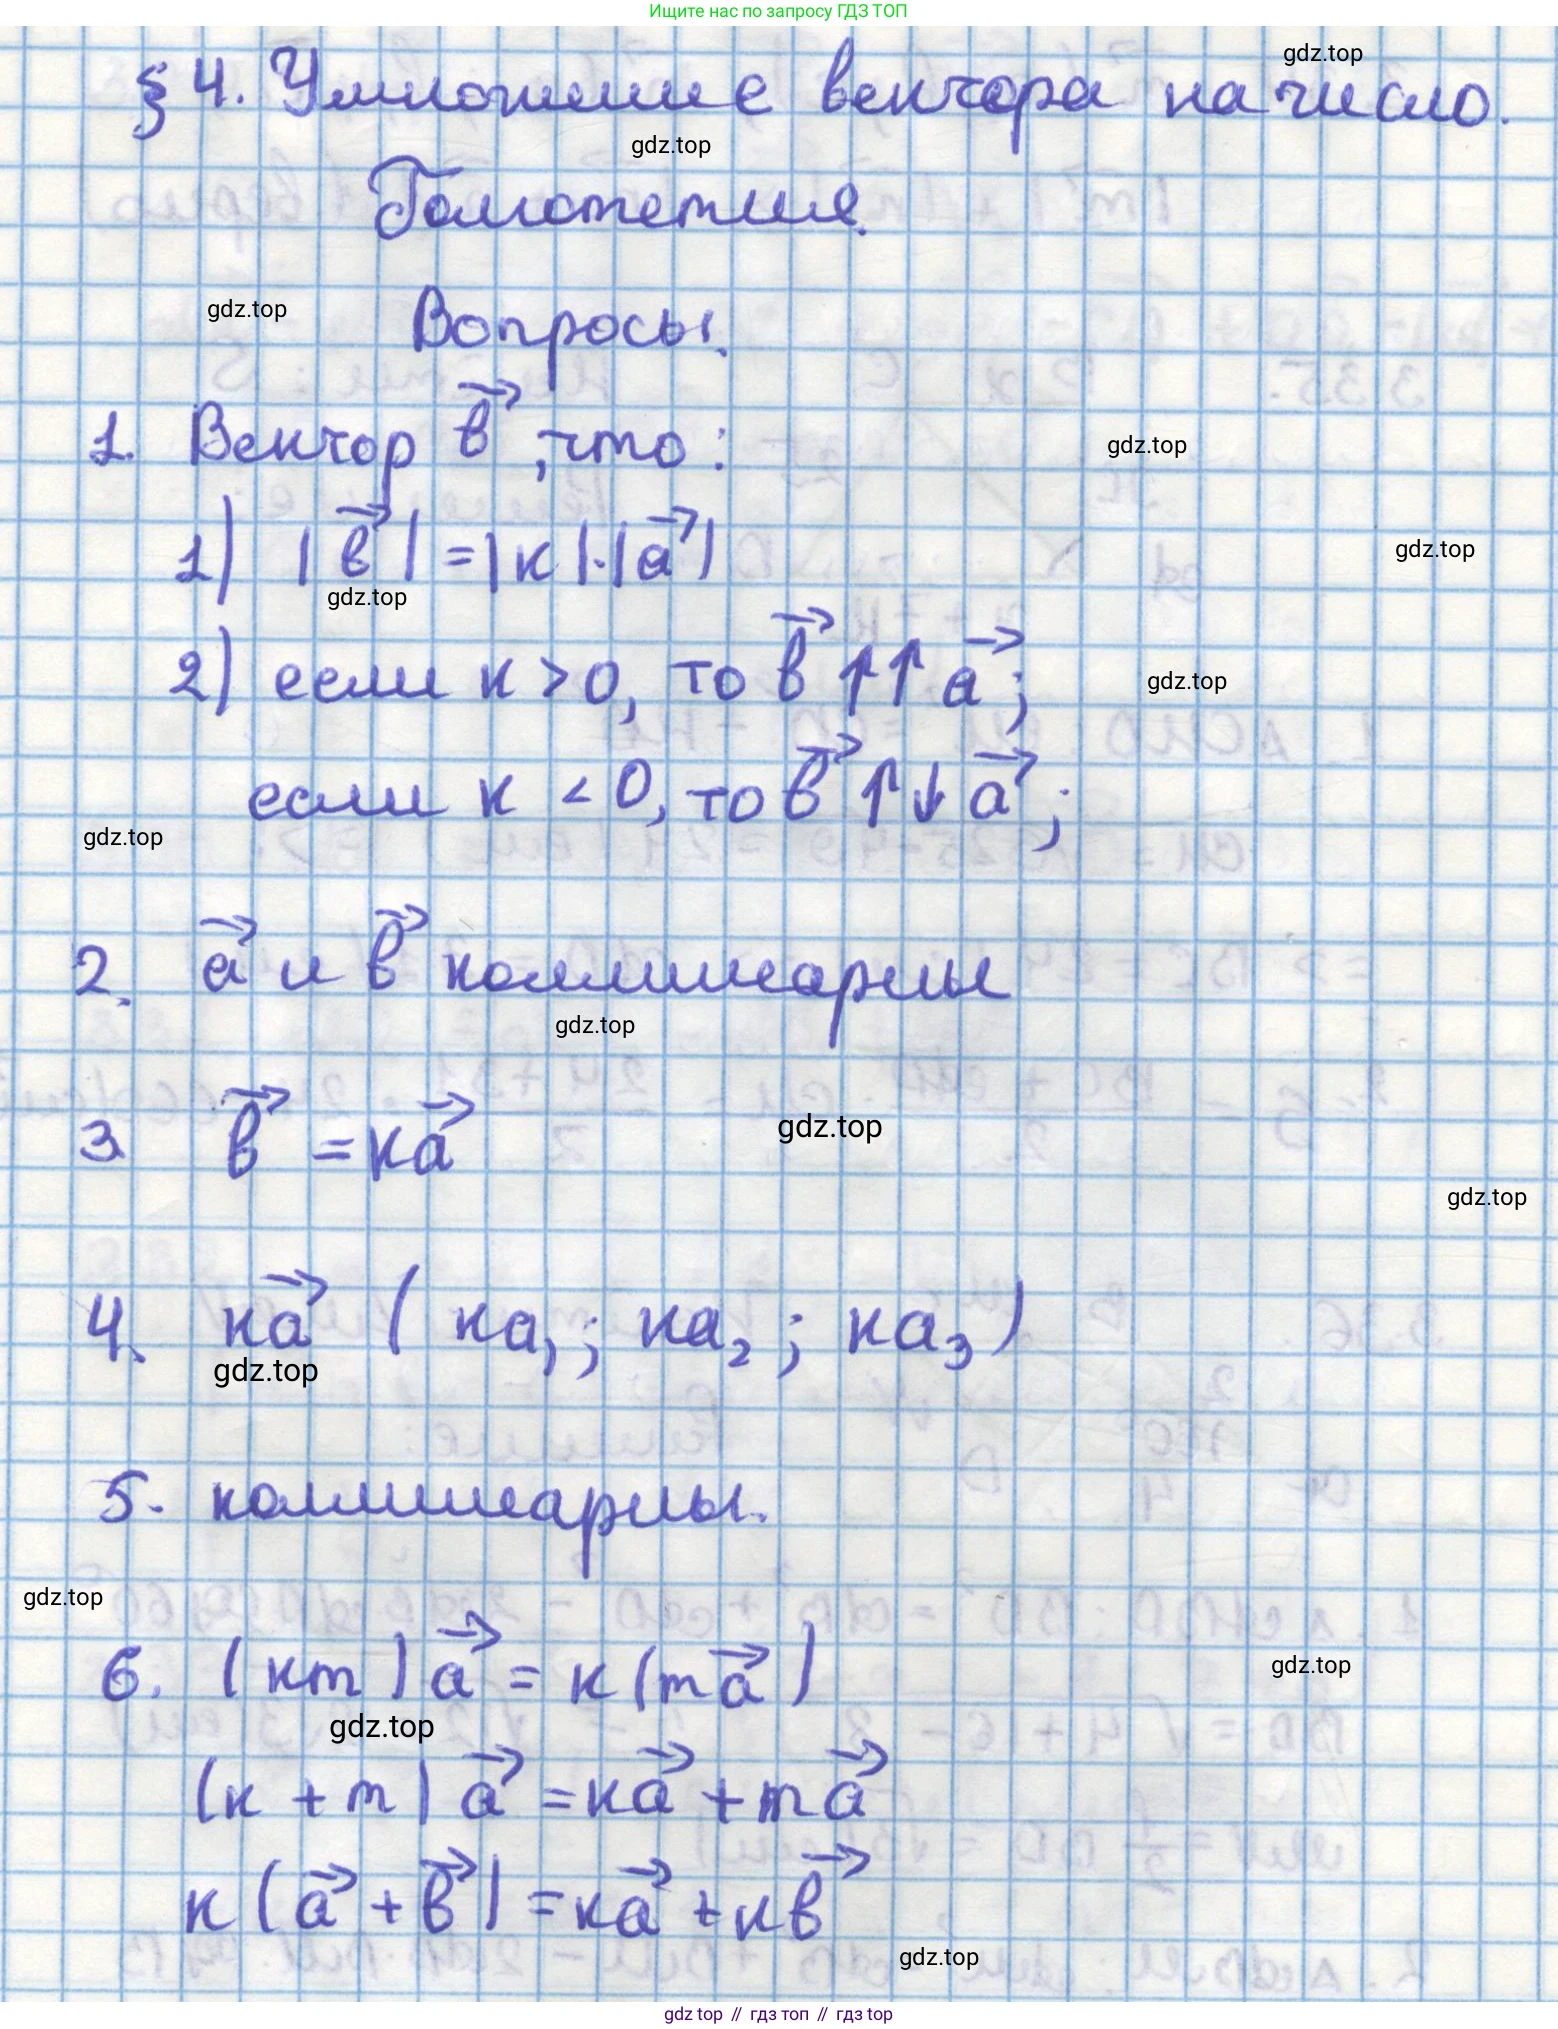 Ищите нас по запросу ГДЗ ТОП
gdz.top
§ 4. Умножение вектора на число.
gdz.top
Гомотетия.
gdz.top
Вопросы.
1. Вектор b⃗, что:
gdz.top
1) |b⃗| = |k|·|a⃗|
gdz.top
gdz.top
2) если k > 0, то b⃗ ↑↑ a⃗;
gdz.top
если k < 0, то b⃗ ↑↓ a⃗;
gdz.top
2. a⃗ и b⃗ коллинеарны
gdz.top
3 b⃗ = ka⃗
gdz.top
gdz.top
4. ka⃗ (ka₁; ka₂; ka₃)
gdz.top
5. коллинеарны.
gdz.top
6. (km)a⃗ = k(ma⃗)
gdz.top
gdz.top
(k + m)a⃗ = ka⃗ + ma⃗
k(a⃗ + b⃗) = ka⃗ + kb⃗
gdz.top
gdz top // гдз топ // гдз top